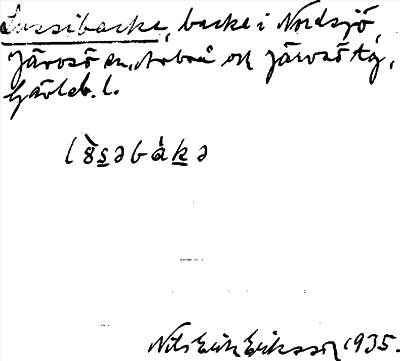 Lussibacke, backe i Nordsjö,
Järvsö sn, Arbrå och Järvsö tg,
Gävleb. l.
l8̀s̲əbàk̲ə
Nils Erik Eriksson 1935.